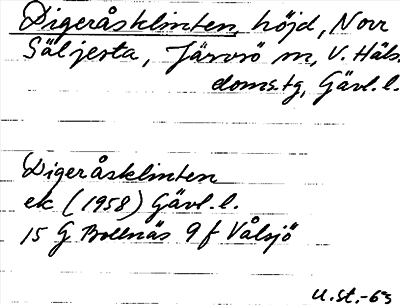 Digeråsklinten, höjd, Norr
Säljesta, Järvsö sn, V. Häls.
doms.tg, Gävl.l.
Digeråsklinten
ek (1958) Gävl.l.
15 G Bollnäs 9 f Vålsjö
U.st.-65